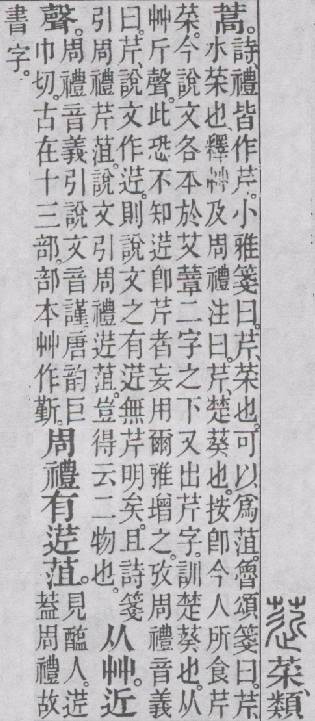 菦菜類
蒿。詩、禮皆作芹。小雅箋曰。芹、菜也。可以爲菹。魯頌箋曰。芹、
水菜也。釋艸及周禮注曰。芹、楚葵也。按卽今人所食芹
菜。今說文各本於艾蔁二字之下又出芹字。訓楚葵也。从
艸斤聲。此恐不知菦卽芹者妄用爾雅增之。攷周禮音義
曰。芹、說文作菦。則說文之有菦無芹明矣。且詩箋
引周禮芹菹。說文引周禮菦菹。豈得云二物也。从艸。近
聲。周禮音義引說文音謹。唐韵巨
巾切。古在十三部。部本艸作斳。周禮有菦菹。見醢人。菦
蓋周禮故
書字。